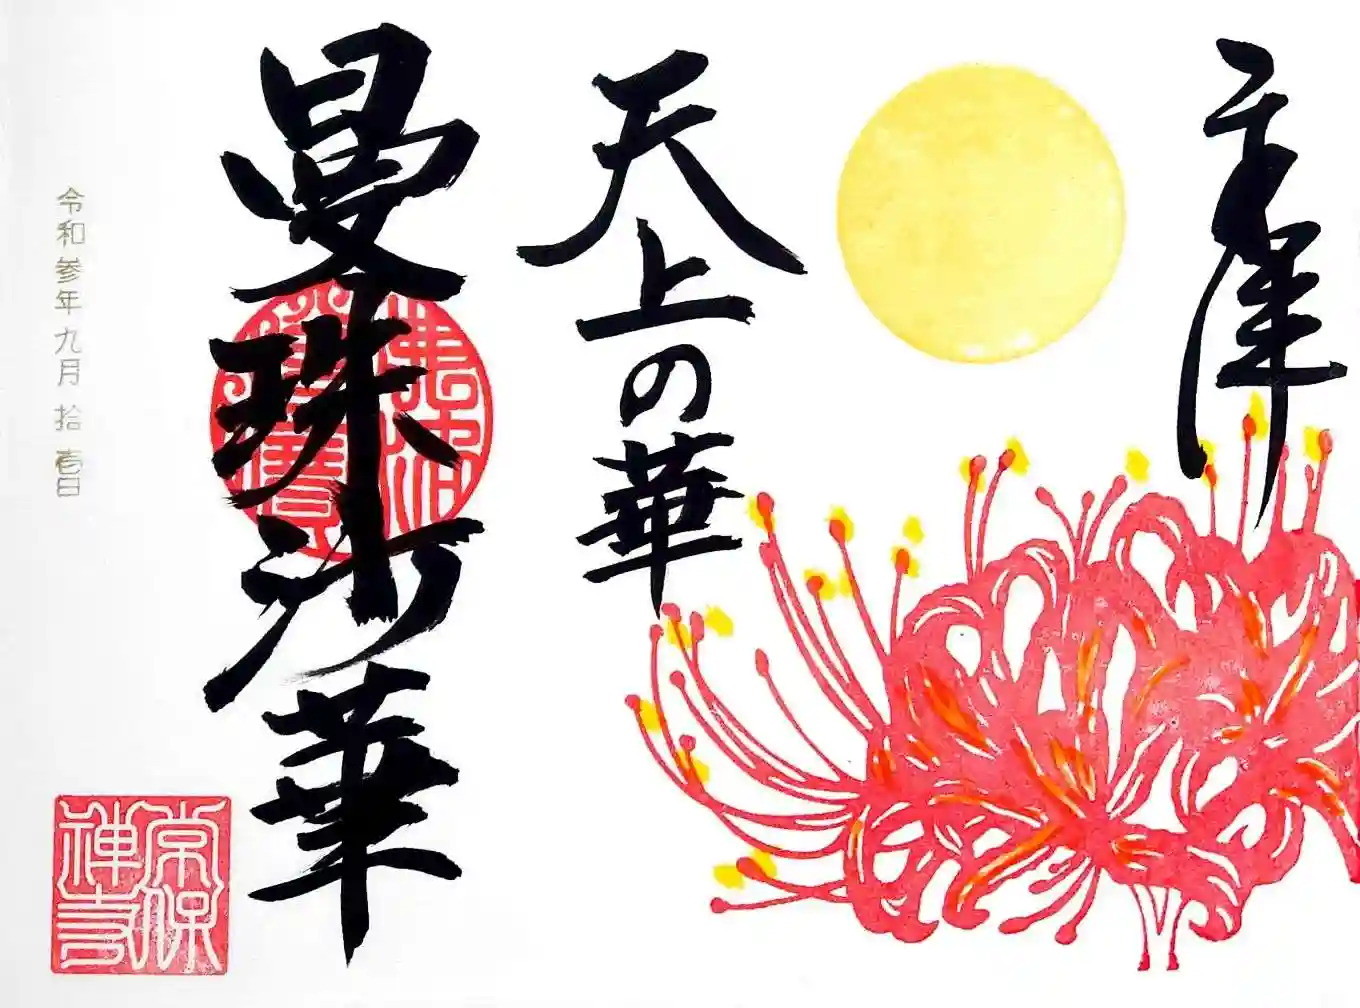 天上の華
曼珠沙華
佛法僧寶
令和参年九月拾壱日
常保
禅寺